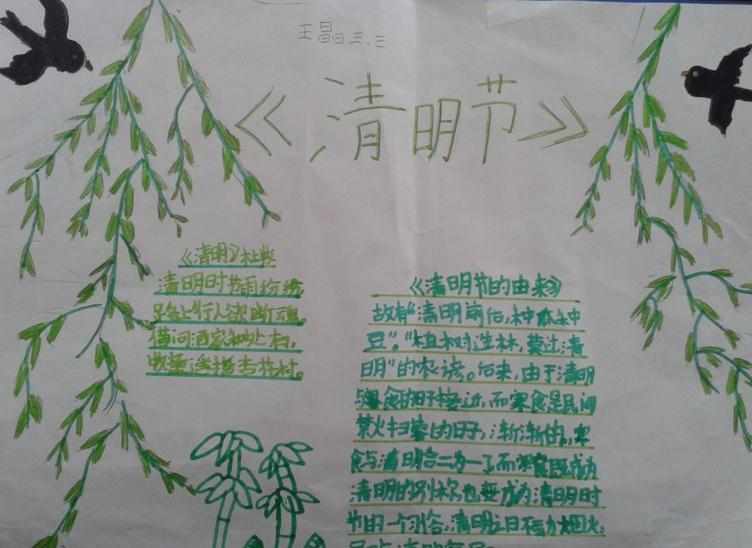 王昌日三.三
《清明节》
《清明》杜牧
清明时节雨纷纷
路上行人欲断魂
借问酒家何处有,
牧童遥指杏花村.
《清明节的由来》
故有“清明前后,种瓜种
豆”.“植树造林,莫过清
明”的农谚。后来,由于清明
与寒食的日子接近,而寒食是民间
禁火扫墓的日子,渐渐的,寒
食与清明合二为一了而寒食既成为
清明的别称,也变成为清明时
节的一个习俗,清明之日不动烟火,